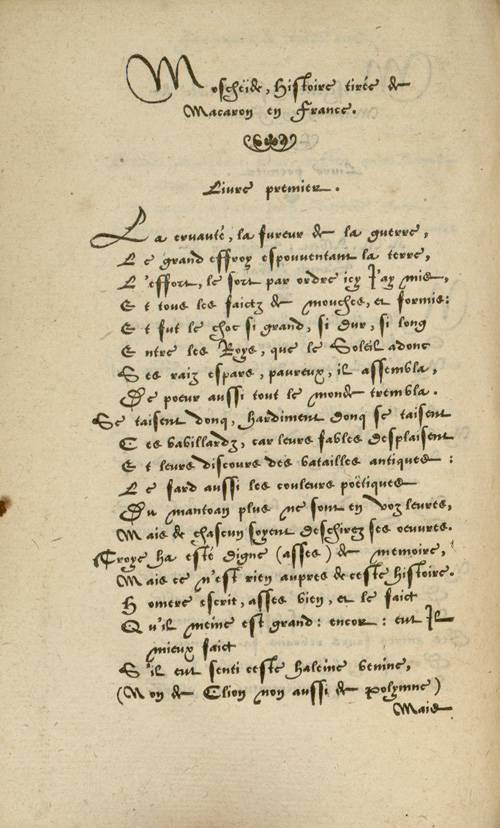 Moscheïde, Histoire tirée de
Macaron en France.
Livre premier.
La cruauté, la fureur de la guerre,
Le grand effroy espouventant la terre,
L'effort, le sort par ordre icy J'ay mis,
Et tous les faictz de mouches, et formis:
Et fut le choc si grand, si dur, si long
Entre les Roys, que le Soleil adonc
Ses raiz espars, paureux, il assembla,
De poeur aussi tout le monde trembla.
Se taisent donq, hardiment donq se taisent
Ces babillardz, car leurs fables desplaisent
Et leurs discours des batailles antiques:
Le fard aussi les couleurs poëtiques
Du mantoan plus ne sont en voz leures,
Mais de chascun soyent deschirez ses oeuvres.
Troye ha esté digne (asses) de memoire,
Mais ce n'est rien aupres de ceste histoire.
Homere escrit, asses bien, et le faict
Qu'il meine est grand: encor: eut Il
mieux faict
S'il eut senti ceste haleine benine,
(Non de Clion non aussi de polymne)
Mais